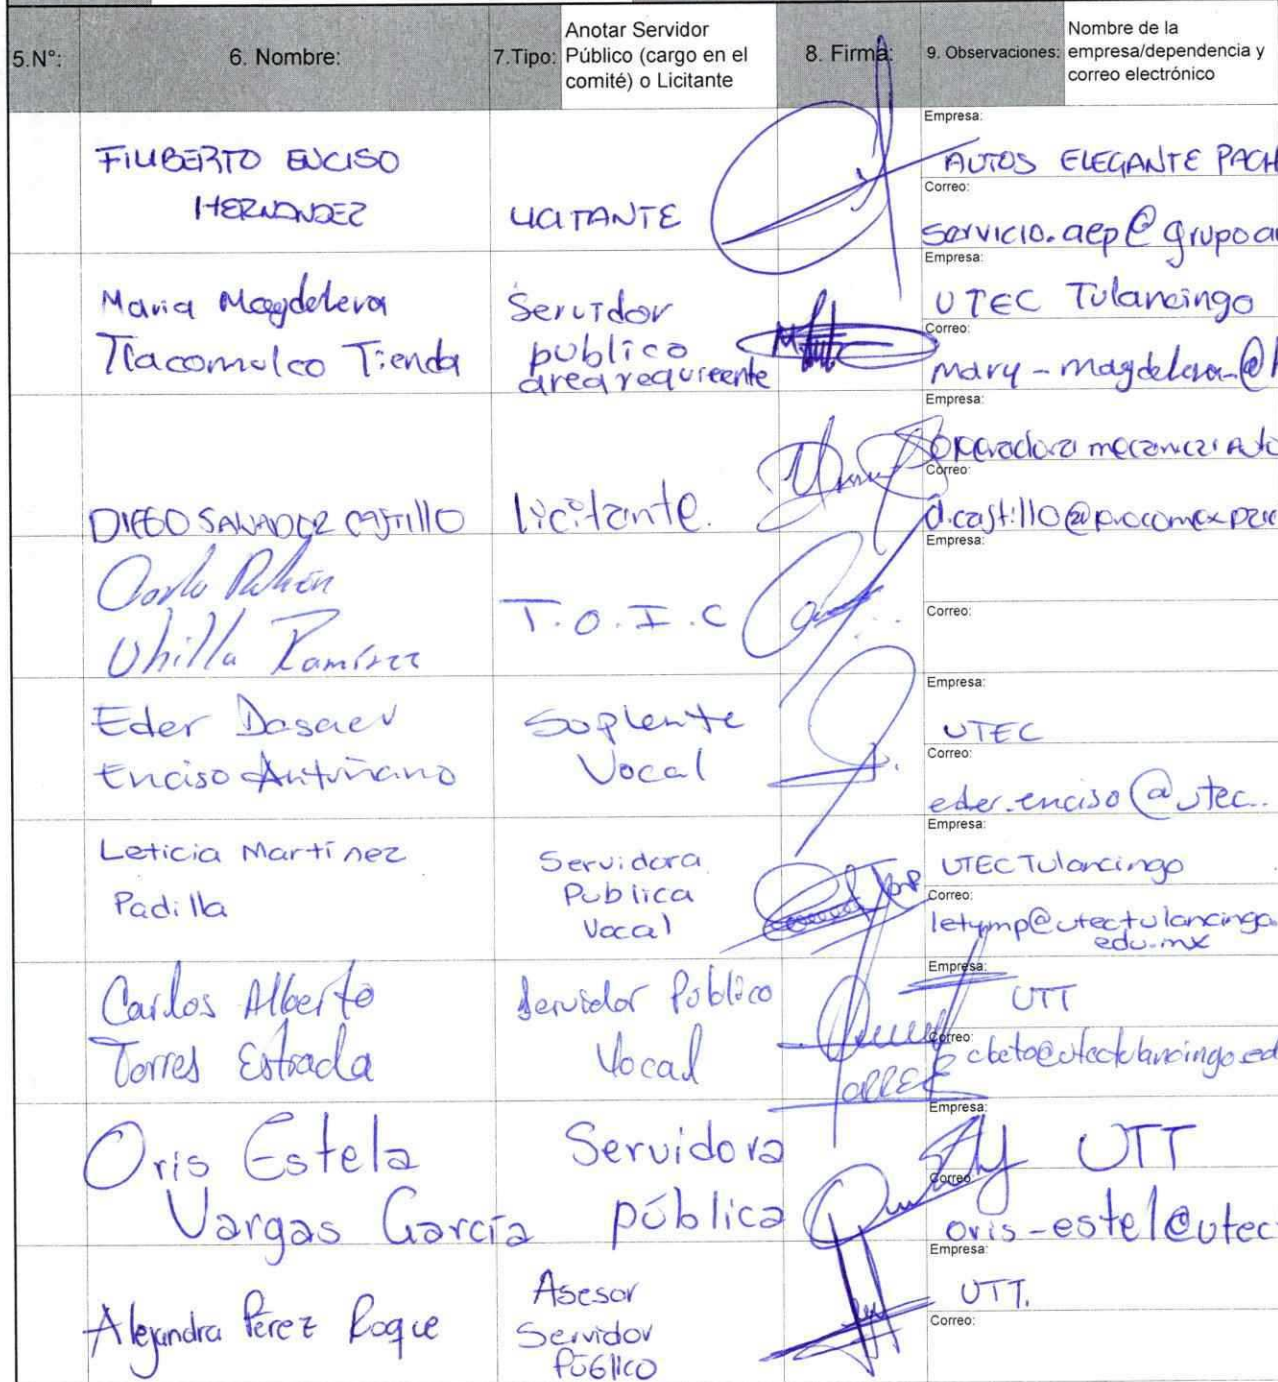 5.N°:
6. Nombre:
7.Tipo:
Anotar Servidor
Público (cargo en el
comité) o Licitante
8. Firma:
9. Observaciones:
Nombre de la
empresa/dependencia y
correo electrónico
FILIBERTO ENCISO
HERNANDEZ
LICITANTE
Empresa:
AUTOS ELEGANTE PACH
Correo:
servicio.aep@grupoar
Maria Magdelena
Tlacomulco Tienda
Servidor
publico
area requirente
Empresa:
UTEC Tulancingo
Correo:
mary-magdelena-@h
DIEGO SALVADOR CASTILLO
licitante.
Empresa:
operadora mecanica Auto
Correo:
d.castillo@procomex
Ramírez
T.O.I.C
Empresa:
Correo:
Eder Dasaev
Enciso Antuñano
Suplente
Vocal
Empresa:
UTEC
Correo:
eder.enciso@utec..
Leticia Martínez
Padilla
Servidora
Publica
Vocal
Empresa:
UTEC Tulancingo
Correo:
letymp@utectulancingo.
edu.mx
Carlos Alberto
Torres Estrada
Servidor Público
Vocal
Empresa:
UTT
Correo:
cbeto@utectulancingo.ed
Oris Estela
Vargas García
Servidora
pública
Empresa:
UTT
Correo:
oris-estel@utec
Alejandra Pérez Roque
Asesor
Servidor
Público
Empresa:
UTT.
Correo: